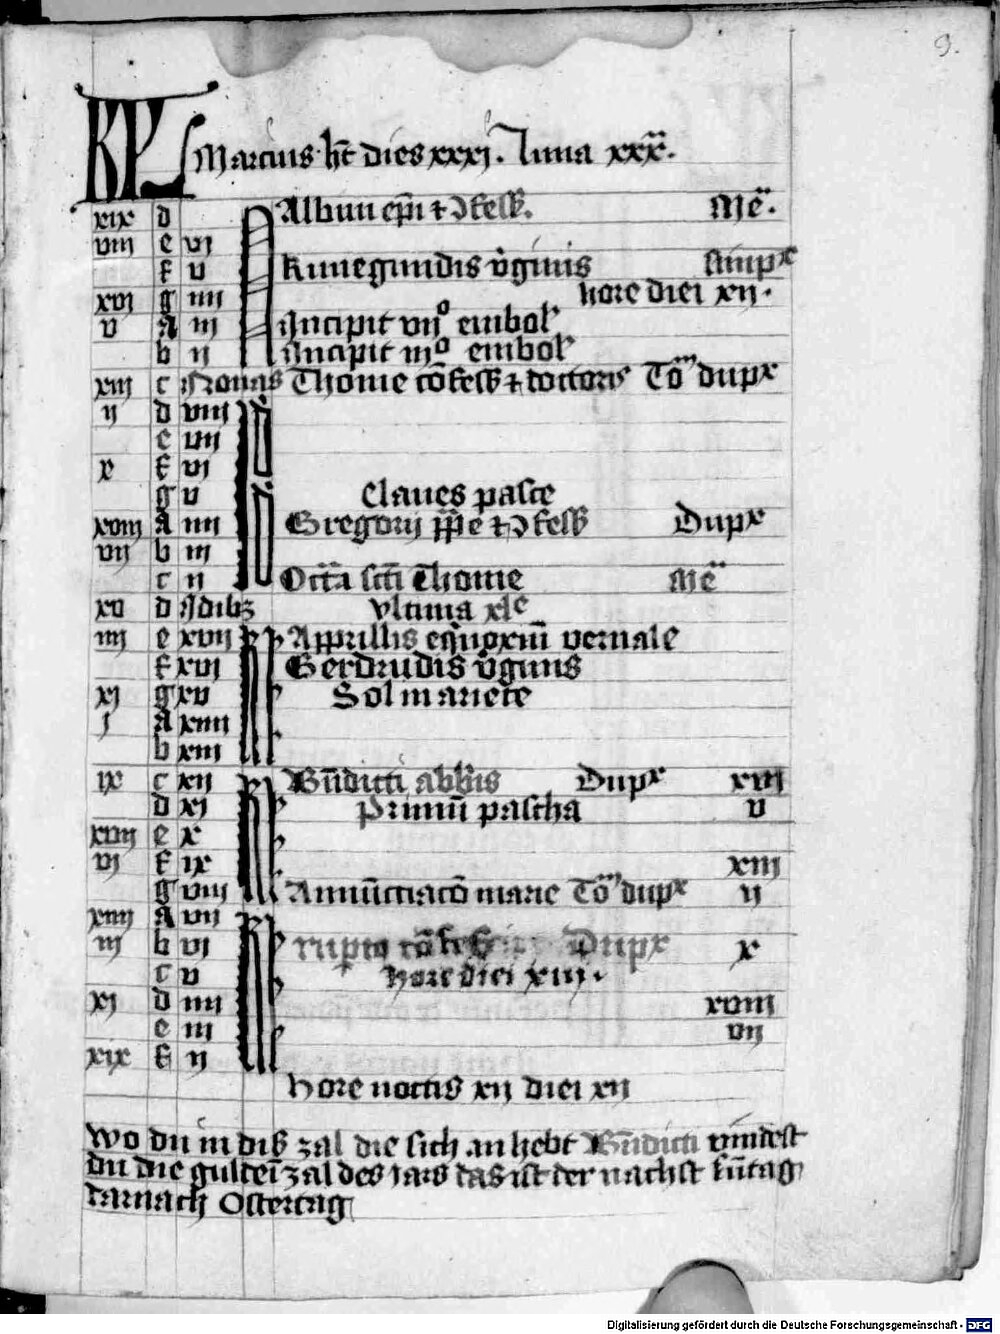 9.
KL Marcius ht dies xxxj. luna xxx.
xix d Albini epi et ↄfess. Me.
viij e vj
f v Kunegundis vginis simpx
xvj g iiij hore diei xij.
v A iij Incipit vijº embol
b ij Incipit iijº embol
xiij c Nonas Thome cōfess et doctoris Tom dupx
ij d viij
e vij
x f vj
g v Claues pasce
xviij A iiij Gregorij ppe et ↄfess Dupx
vij b iij
c ij Octa scti Thome Me
xv d Idibz vltima xle
iiij e xvij Apprillis eqnoxiū vernale
f xvj Gerdrudis vginis
xj g xv Sol in ariete
j A xiiij
b xiij
ix c xij Bndicti abbis Dupx xvj
d xj Primū pascha v
xvij e x
vj f ix xiij
g viij Annūctiacō marie Tom dupx ij
xiiij A vij
iij b vj rupto cōfess Dupx x
c v hore diei xiij.
xj d iiij xviij
e iij vij
xix f ij
hore noctis xij diei xij
Wo du in diß zal die sich an hebt Bndicti vindest
du die guldeī zal des iars das ist der nachst sūtag
darnach Ostertag
Digitalisierung gefördert durch die Deutsche Forschungsgemeinschaft - DFG